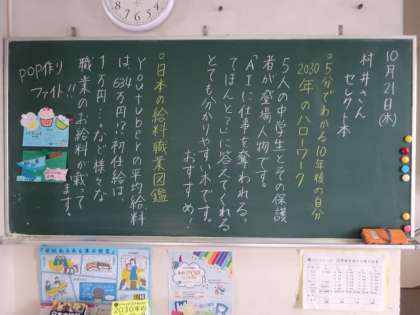 10月21日(木)
村井さん
セレクト本
○5分でわかる10年後の自分
2030年のハローワーク
5人の中学生とその保護
者が登場人物です。
「AIに仕事を奪われる、
てほんと?」に答えてくれる
とても分かりやすい本です。
おすすめ!
○日本の給料職業図鑑
Youtuberの平均給料
は634万円!?初任給は、
1万円…など様々な
職業のお給料が載ってます。
POP作り
ファイト!!
2030年の